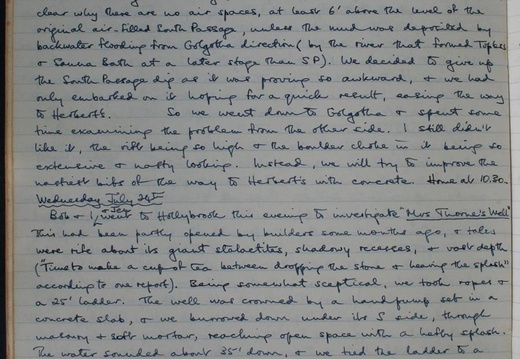 clear why there are no air spaces, at least 6' above the level of the
original air-filled South Passage, unless the mud was deposited by
backwater flooding from Golgotha direction (by the river that formed Topless
& Sauna Bath at a later stage than SP). We decided to give up
the South Passage dig as it was proving so awkward, & we had
only embarked on it hoping for a quick result, easing the way
to Herbert's. So we went down to Golgotha & spent some
time examining the problem from the other side. I still didn't
like it, the rift being so high & the boulder choke in it being so
extensive & nasty looking. Instead, we will try to improve the
nastiest bits of the way to Herbert's with concrete. Home at 10.30.
Wednesday July 24th
Bob & I, & Jen went to Hollybrook this evening to investigate "Mrs Thorne's Well"
This had been partly opened by builders some months ago, & tales
were rife about its giant stalactites, shadowy recesses, & vast depth
("Time to make a cup of tea between dropping the stone & hearing the splash"
according to one report). Being somewhat sceptical, we took ropes &
a 25' ladder. The well was crowned by a hand pump set in a
concrete slab, & we burrowed down under its S side, through
masonry & soft mortar, reaching open space with a hefty splash.
The water sounded about 35' down, & we tied the ladder to a